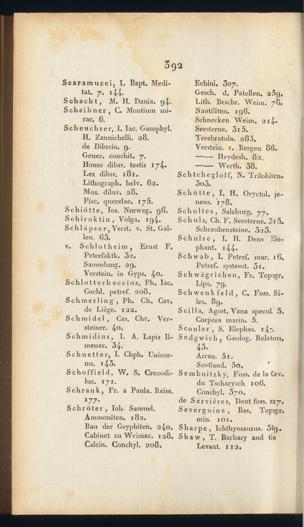 392
Scaramucci, I. Bapt. Medi-
tat. 7. 144.
Schacht, M. H. Dania. 94.
Scheibner, C. Montium mi-
rac. 6.
Scheuchzer, I. Iac. Gazophyl.
H. Zannichelli, 28.
de Diluvio. 9.
Gener. conchit. 7.
Homo diluv. testis 174.
Lex diluv. 181.
Lithograph. helv. 62.
Mus. diluv. 28.
Pisc. querelae. 175.
Schiötte, Ios. Norweg. 96.
Schirotkin, Volga. 194.
Schläpfer, Verst. v. St. Gal-
len. 63.
v. Schlotheim, Ernst F.
Petrefaktk. 32.
Sammlung. 29.
Verstein. in Gyps. 40.
Schlotterbeccius, Ph. Iac.
Cochl. petref. 208.
Schmerling, Ph. Ch. Cav.
de Liège. 122.
Schmidel, Cas. Chr. Ver-
steiner. 40.
Schmidius, I. A. Lapis Il-
menav. 34.
Schnetter, I. Chph. Unicor-
nu. 143.
Schoffield, W. S. Crocodi-
lus. 171.
Schrank, Fr. a Paula. Reise.
177.
Schröter, Ioh. Samuel.
Ammoniten. 182.
Bau der Gryphiten. 240.
Cabinet zu Weimar. 128.
Calcin. Conchyl. 208.
Echini. 307.
Gesch. d. Patellen. 239.
Lith. Beschr. Weim. 78.
Nautiliten. 196.
Schnecken Weim. 214.
Seesterne. 315.
Terebratula. 285.
Verstein. v. Bergen 86.
—— Heydesh. 82.
—— Werth. 38.
Schtschegloff, N. Trilobiten.
303.
Schütte, I. H. Oryctol. je-
nens. 178.
Schultes, Salzburg. 77.
Schulz, Ch. F. Seesterne. 315.
Schraubensteine. 323.
Schulze, I. H. Dens Ele-
phant. 144.
Schwab, I Petref. mar. 16.
Petref. systemst. 31.
Schwägrichen, Fr. Topogr.
Lips. 79.
Schwenkfeld, C. Foss. Si-
les. 89.
Scilla, Agost. Vana specul. 5.
Corpora marin. 5.
Sconler, S. Elephas. 147.
Sedgwich, Geolog. Relators.
43.
Arran. 51.
Scotland. 50.
Sembnitzky, Foss. de la Cav.
du Tscharysch 106.
Conchyl. 370.
de Servières, Dent foss. 127.
Severguine, Bas. Topogr.
min. 101.
Sharpe, Ichthyosaurus. 319.
Shaw, T. Barbary and tie
Levant. 112.